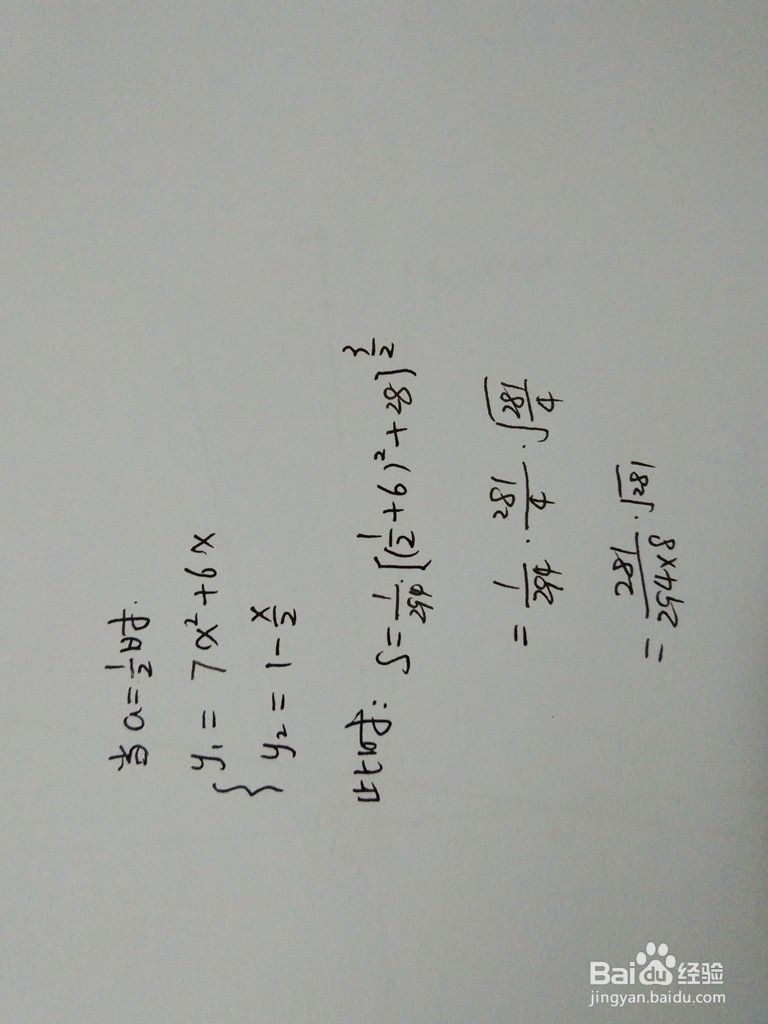 当a=1/2时.
{ y₁ = 7x²+6x
y₂ = 1-x/2
此时: S=1/294·[(1/2+6)²+28]^(3/2)
= 1/294 · 281/4 · √(281/4)
= 281/(294×8) · √281
Bai du 经验
jingyan.baidu.com